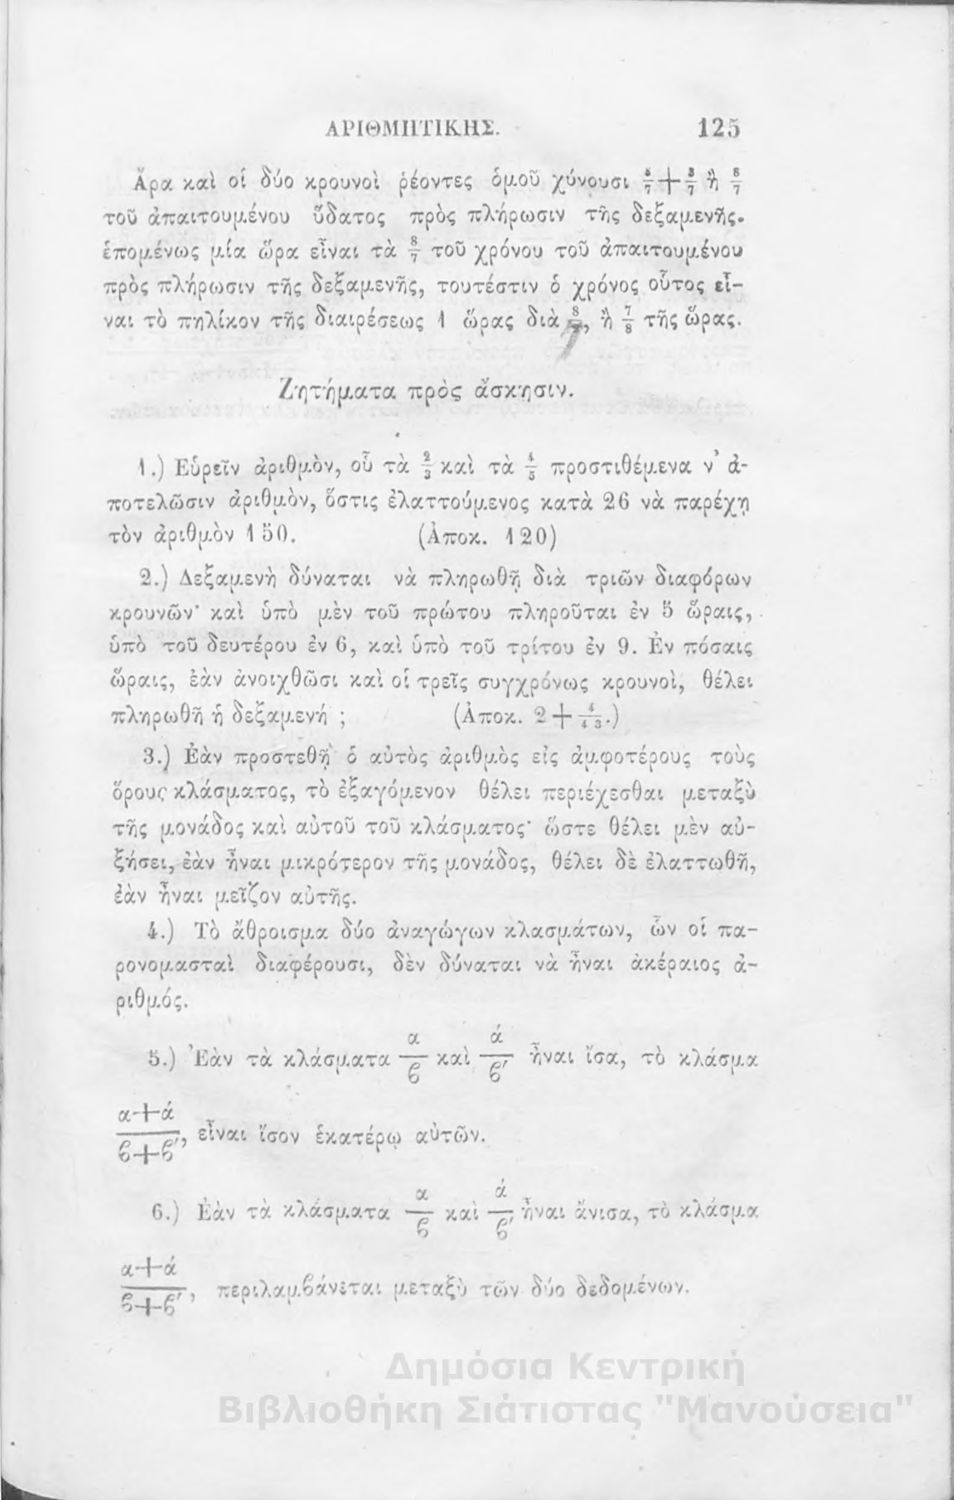 ΑΡΙΘΜΗΤΙΚΗΣ. 125
Ἄρα καὶ οἱ δύο κρουνοὶ ῥέοντες ὁμοῦ χύνουσι 5/7 + 3/7 ἢ 8/7
τοῦ ἀπαιτουμένου ὕδατος πρὸς πλήρωσιν τῆς δεξαμενῆς.
ἑπομένως μία ὥρα εἶναι τὰ 8/7 τοῦ χρόνου τοῦ ἀπαιτουμένου
πρὸς πλήρωσιν τῆς δεξαμενῆς, τουτέστιν ὁ χρόνος οὗτος εἶ-
ναι τὸ πηλίκον τῆς διαιρέσεως 1 ὥρας διὰ 8/7, ἢ 7/8 τῆς ὥρας.
Ζητήματα πρὸς ἄσκησιν.
1.) Εὑρεῖν ἀριθμὸν, οὗ τὰ 2/3 καὶ τὰ 4/5 προστιθέμενα ν' ἀ-
ποτελῶσιν ἀριθμὸν, ὅστις ἐλαττούμενος κατὰ 26 νὰ παρέχῃ
τὸν ἀριθμὸν 150. (Ἀποκ. 120)
2.) Δεξαμενὴ δύναται νὰ πληρωθῇ διὰ τριῶν διαφόρων
κρουνῶν· καὶ ὑπὸ μὲν τοῦ πρώτου πληροῦται ἐν 5 ὥραις,
ὑπὸ τοῦ δευτέρου ἐν 6, καὶ ὑπὸ τοῦ τρίτου ἐν 9. Ἐν πόσαις
ὥραις, ἐὰν ἀνοιχθῶσι καὶ οἱ τρεῖς συγχρόνως κρουνοὶ, θέλει
πληρωθῆ ἡ δεξαμενή ; (Ἀποκ. 2 + 4/43.)
3.) Ἐὰν προστεθῇ ὁ αὐτὸς ἀριθμὸς εἰς ἀμφοτέρους τοὺς
ὅρους κλάσματος, τὸ ἐξαγόμενον θέλει περιέχεσθαι μεταξὺ
τῆς μονάδος καὶ αὐτοῦ τοῦ κλάσματος· ὥστε θέλει μὲν αὐ-
ξήσει, ἐὰν ἦναι μικρότερον τῆς μονάδος, θέλει δὲ ἐλαττωθῆ,
ἐὰν ἦναι μεῖζον αὐτῆς.
4.) Τὸ ἄθροισμα δύο ἀναγώγων κλασμάτων, ὧν οἱ πα-
ρονομασταὶ διαφέρουσι, δὲν δύναται νὰ ἦναι ἀκέραιος ἀ-
ριθμός.
5.) Ἐὰν τὰ κλάσματα α/ϐ καὶ ά/ϐ′ ἦναι ἴσα, τὸ κλάσμα
α+ά/ϐ+ϐ′, εἶναι ἴσον ἑκατέρῳ αὐτῶν.
6.) Ἐὰν τὰ κλάσματα α/ϐ καὶ ά/ϐ′ ἦναι ἄνισα, τὸ κλάσμα
α+ά/ϐ+ϐ′, περιλαμϐάνεται μεταξὺ τῶν δύο δεδομένων.
Δημόσια Κεντρική
Βιβλιοθήκη Σιάτιστας "Μανούσεια"